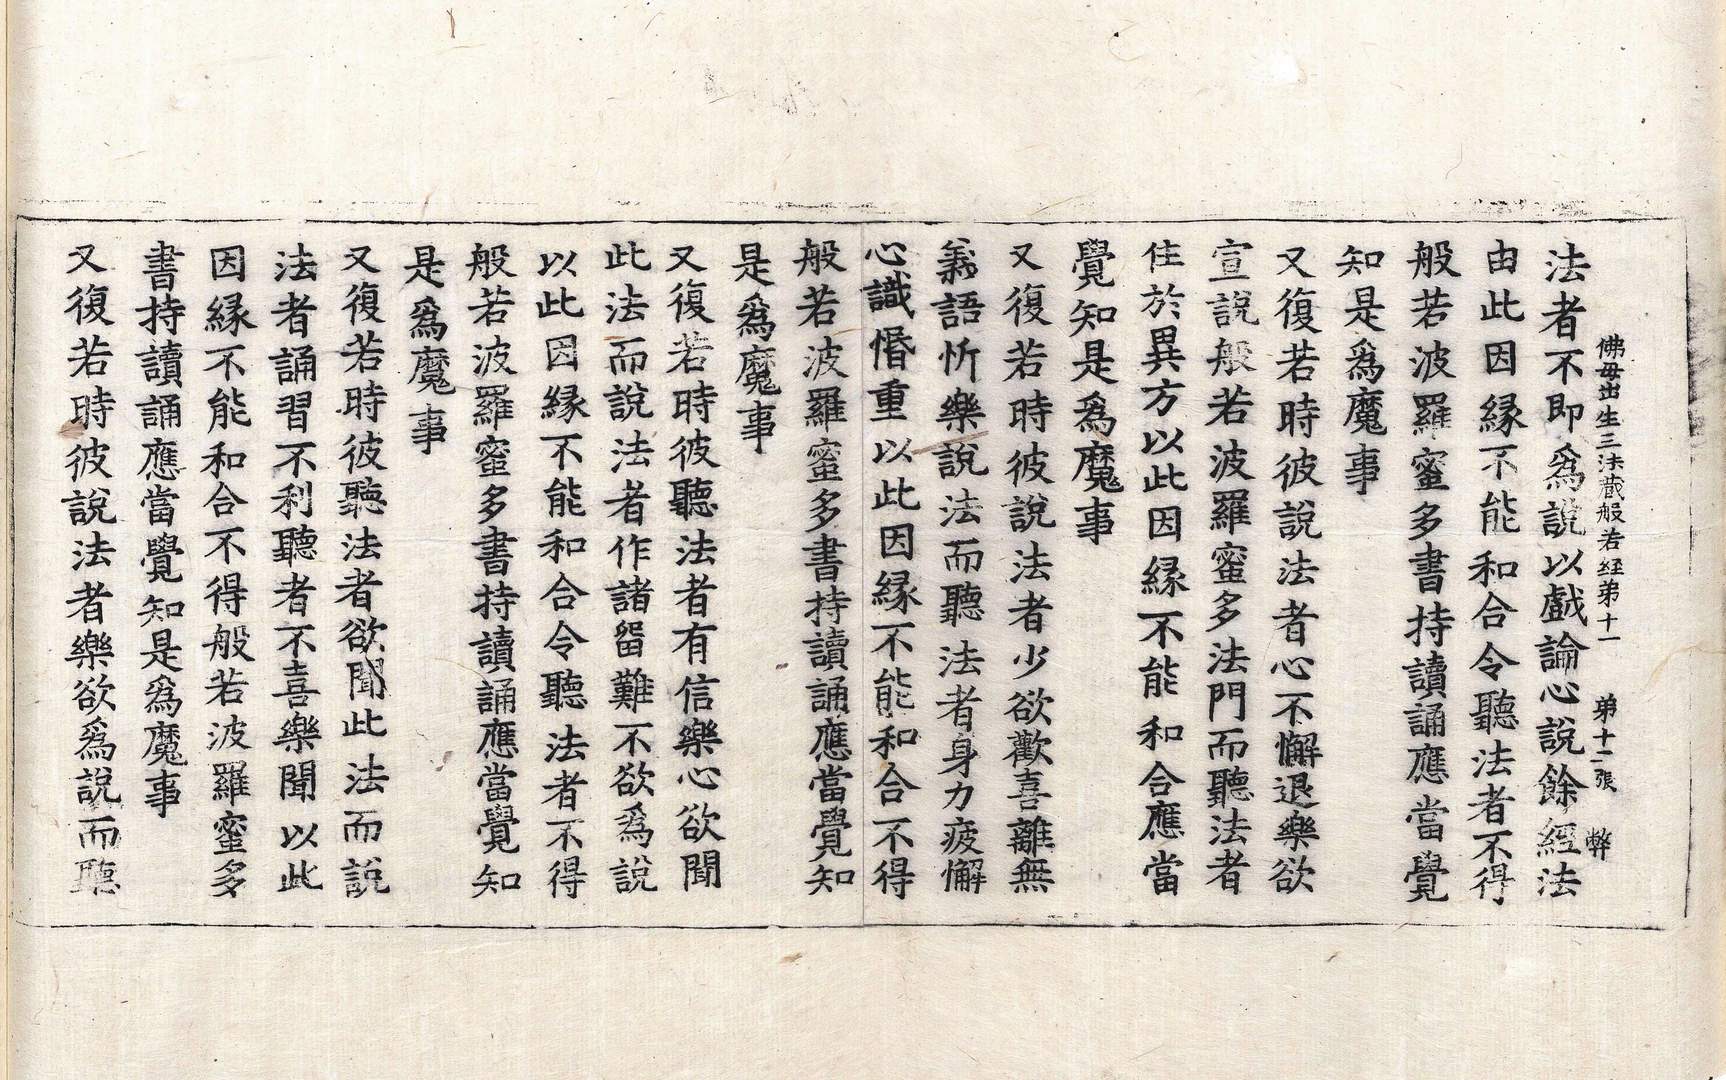 佛母出生三法藏般若經第十一 第十二張 弊
法者不即爲說以戲論心說餘經法
由此因緣不能和合令聽法者不得
般若波羅蜜多書持讀誦應當覺
知是爲魔事
又復若時彼說法者心不懈退樂欲
宣說般若波羅蜜多法門而聽法者
住於異方以此因緣不能和合應當
覺知是爲魔事
又復若時彼說法者少欲歡喜離無
義語忻樂說法而聽法者身力疲懈
心識惛重以此因緣不能和合不得
般若波羅蜜多書持讀誦應當覺知
是爲魔事
又復若時彼聽法者有信樂心欲聞
此法而說法者作諸留難不欲爲說
以此因緣不能和合令聽法者不得
般若波羅蜜多書持讀誦應當覺知
是爲魔事
又復若時彼聽法者欲聞此法而說
法者誦習不利聽者不喜樂聞以此
因緣不能和合不得般若波羅蜜多
書持讀誦應當覺知是爲魔事
又復若時彼說法者樂欲爲說而聽